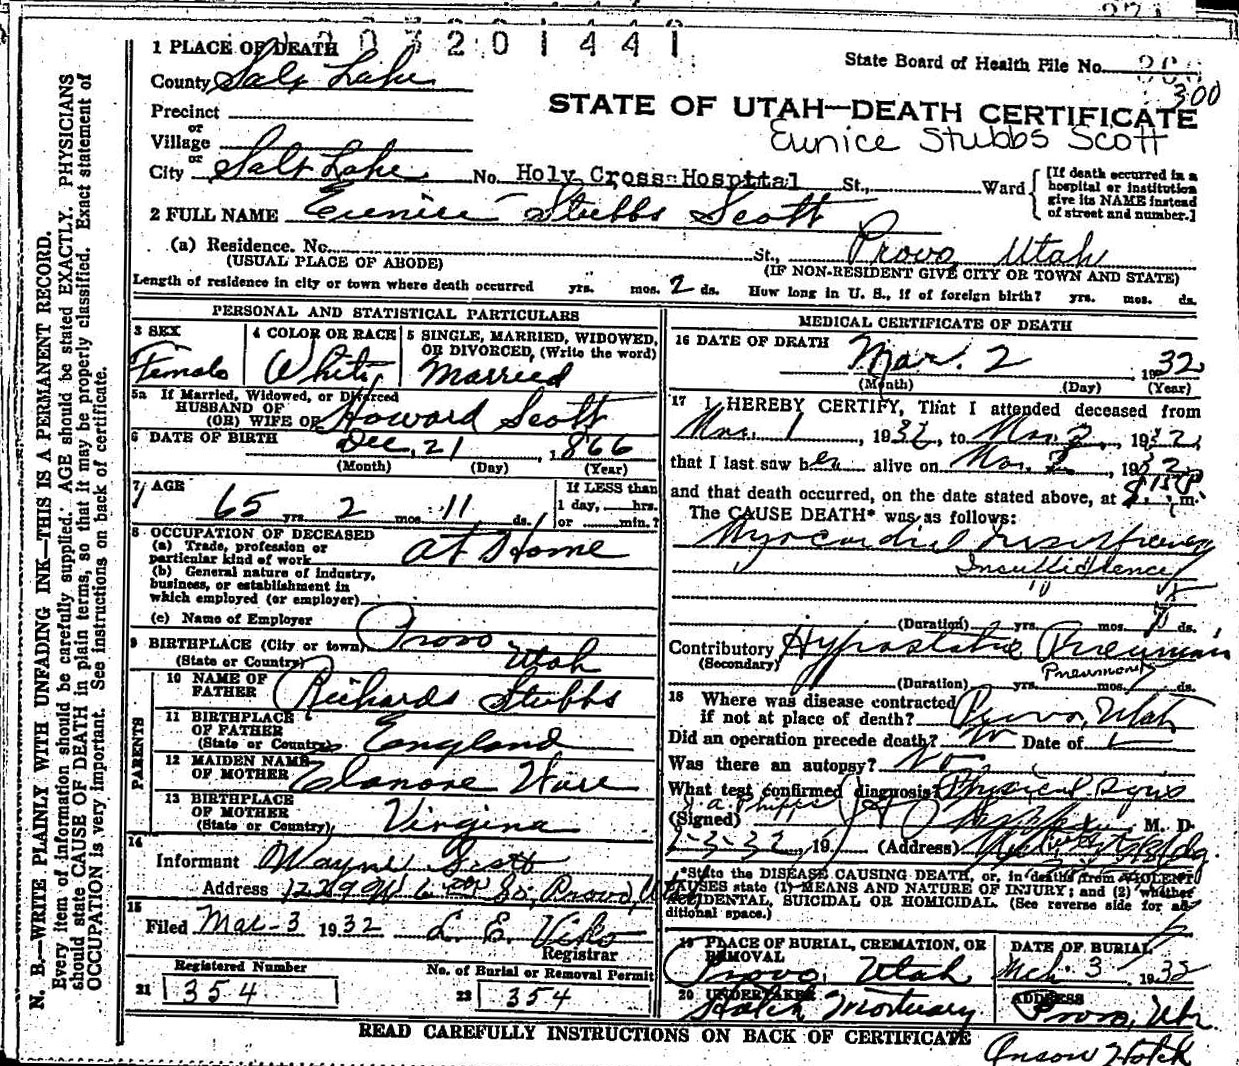 3 2 0 1 4 4 1
State Board of Health File No.
300
1 PLACE OF DEATH
County Salt Lake
STATE OF UTAH—DEATH CERTIFICATE
Precinct
Eunice Stubbs Scott
or
Village
or
City Salt Lake No. Holy Cross Hospital St., Ward
[If death occurred in a hospital or institution give its NAME instead of street and number.]
2 FULL NAME Eunice Stubbs Scott
(a) Residence. No. St., Provo, Utah
(USUAL PLACE OF ABODE) (IF NON-RESIDENT GIVE CITY OR TOWN AND STATE)
Length of residence in city or town where death occurred yrs. mos. 2 ds. How long in U. S., if of foreign birth? yrs. mos. ds.
PERSONAL AND STATISTICAL PARTICULARS
3 SEX
Female
4 COLOR OR RACE
White
5 SINGLE, MARRIED, WIDOWED, OR DIVORCED, (Write the word)
Married
5a If Married, Widowed, or Divorced
HUSBAND OF
(OR) WIFE OF Howard Scott
6 DATE OF BIRTH Dec. 21, 1866
(Month) (Day) (Year)
7 AGE
65 yrs. 2 mos. 11 ds.
If LESS than
1 day, hrs.
or min.?
8 OCCUPATION OF DECEASED
(a) Trade, profession or
particular kind of work At Home
(b) General nature of industry,
business, or establishment in
which employed (or employer)
(c) Name of Employer
9 BIRTHPLACE (City or town) Provo
(State or Country) Utah
PARENTS
10 NAME OF
FATHER Richards Stubbs
11 BIRTHPLACE
OF FATHER
(State or Country) England
12 MAIDEN NAME
OF MOTHER Elanore Ware
13 BIRTHPLACE
OF MOTHER
(State or Country) Virgina
14
Informant Wayne Scott
Address So., Provo,
15
Filed Mar-3 1932 L. E.
Registrar
Registered Number
21 354
No. of Burial or Removal Permit
22 354
MEDICAL CERTIFICATE OF DEATH
16 DATE OF DEATH Mar. 2 1932
(Month) (Day) (Year)
17 I HEREBY CERTIFY, That I attended deceased from
Mar. 1, 1932, to Mar. 2, 1932,
that I last saw her alive on Mar. 2, 1932
and that death occurred, on the date stated above, at m.
The CAUSE DEATH* was as follows:
Myocardial Insufficiency
Insufficiency
(Duration) yrs. mos. ds.
Contributory Hypostatic Pneumonia
(Secondary) Pneumonia
(Duration) yrs. mos. ds.
18 Where was disease contracted
if not at place of death? Provo, Utah
Did an operation precede death? No Date of
Was there an autopsy? No
What test confirmed diagnosis? Physical Signs
(Signed) M. D.
2-3-32, 19 (Address) Bldg.
*State the DISEASE CAUSING DEATH, or, in deaths from VIOLENT
CAUSES state (1) MEANS AND NATURE OF INJURY; and (2) whether
ACCIDENTAL, SUICIDAL OR HOMICIDAL. (See reverse side for ad-
ditional space.)
19 PLACE OF BURIAL, CREMATION, OR
REMOVAL
Provo, Utah
DATE OF BURIAL
Mch. 3 1932
20 UNDERTAKER
Hatch Mortuary
ADDRESS
Provo, Utah
READ CAREFULLY INSTRUCTIONS ON BACK OF CERTIFICATE
Anson Hatch
N. B.—WRITE PLAINLY WITH UNFADING INK—THIS IS A PERMANENT RECORD.
Every item of information should be carefully supplied. AGE should be stated EXACTLY. PHYSICIANS
should state CAUSE OF DEATH in plain terms, so that it may be properly classified. Exact statement of
OCCUPATION is very important. See instructions on back of certificate.